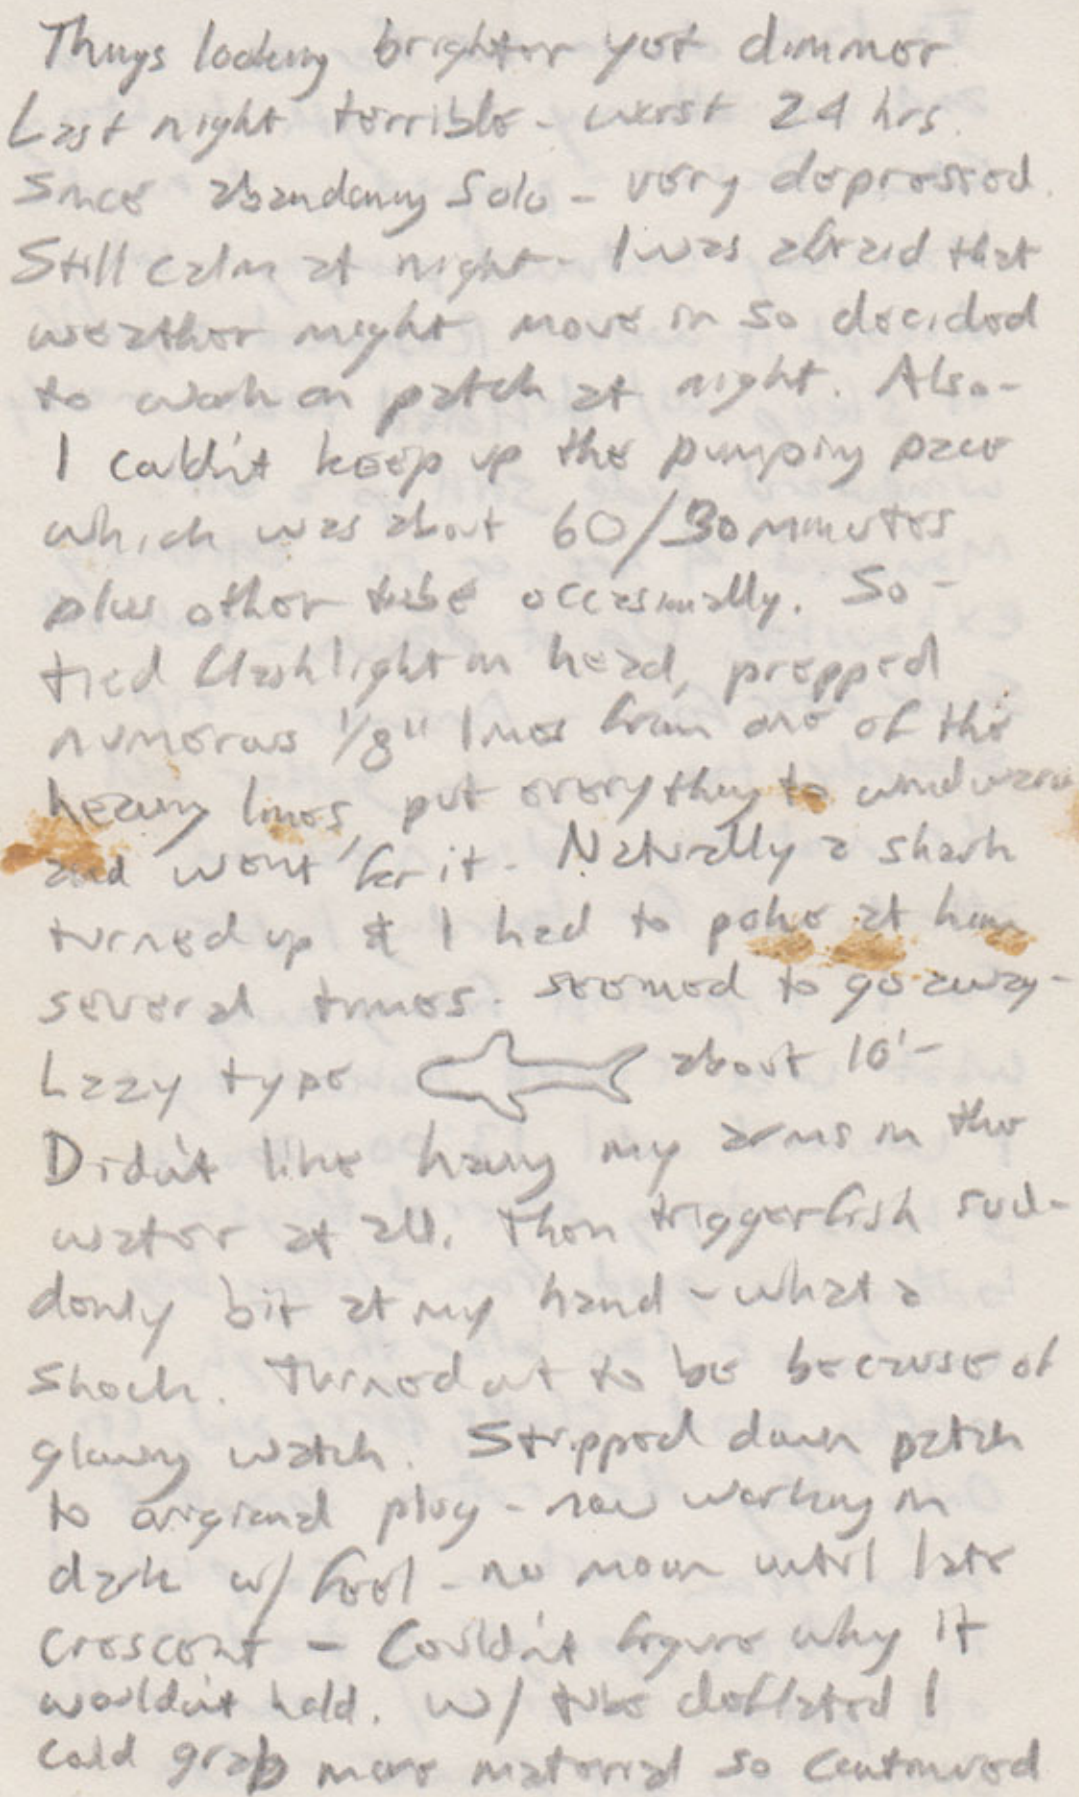 Things looking brighter yet dimmer.
Last night terrible - worst 24 hrs.
since abandoning Solo - very depressed.
Still calm at night - I was afraid that
weather might move in so decided
to work on patch at night. Also -
I couldn't keep up the pumping pace
which was about 60/30 minutes
plus other tube occasionally. So -
tied flashlight on head, prepped
numerous 1/8" lines from one of the
heavy lines, put everything to windward
and went for it. Naturally a shark
turned up & I had to poke at him
several times. seemed to go away -
Lazy type about 10' -
Didn't like having my arms in the
water at all. Then triggerfish sud-
denly bit at my hand - what a
shock. Turned out to be because of
glowing watch. Stripped down patch
to original plug - now working in
dark w/ feel - no moon until late
crescent - Couldn't figure why it
wouldn't hold. W/ tube deflated I
could grab more material so continued